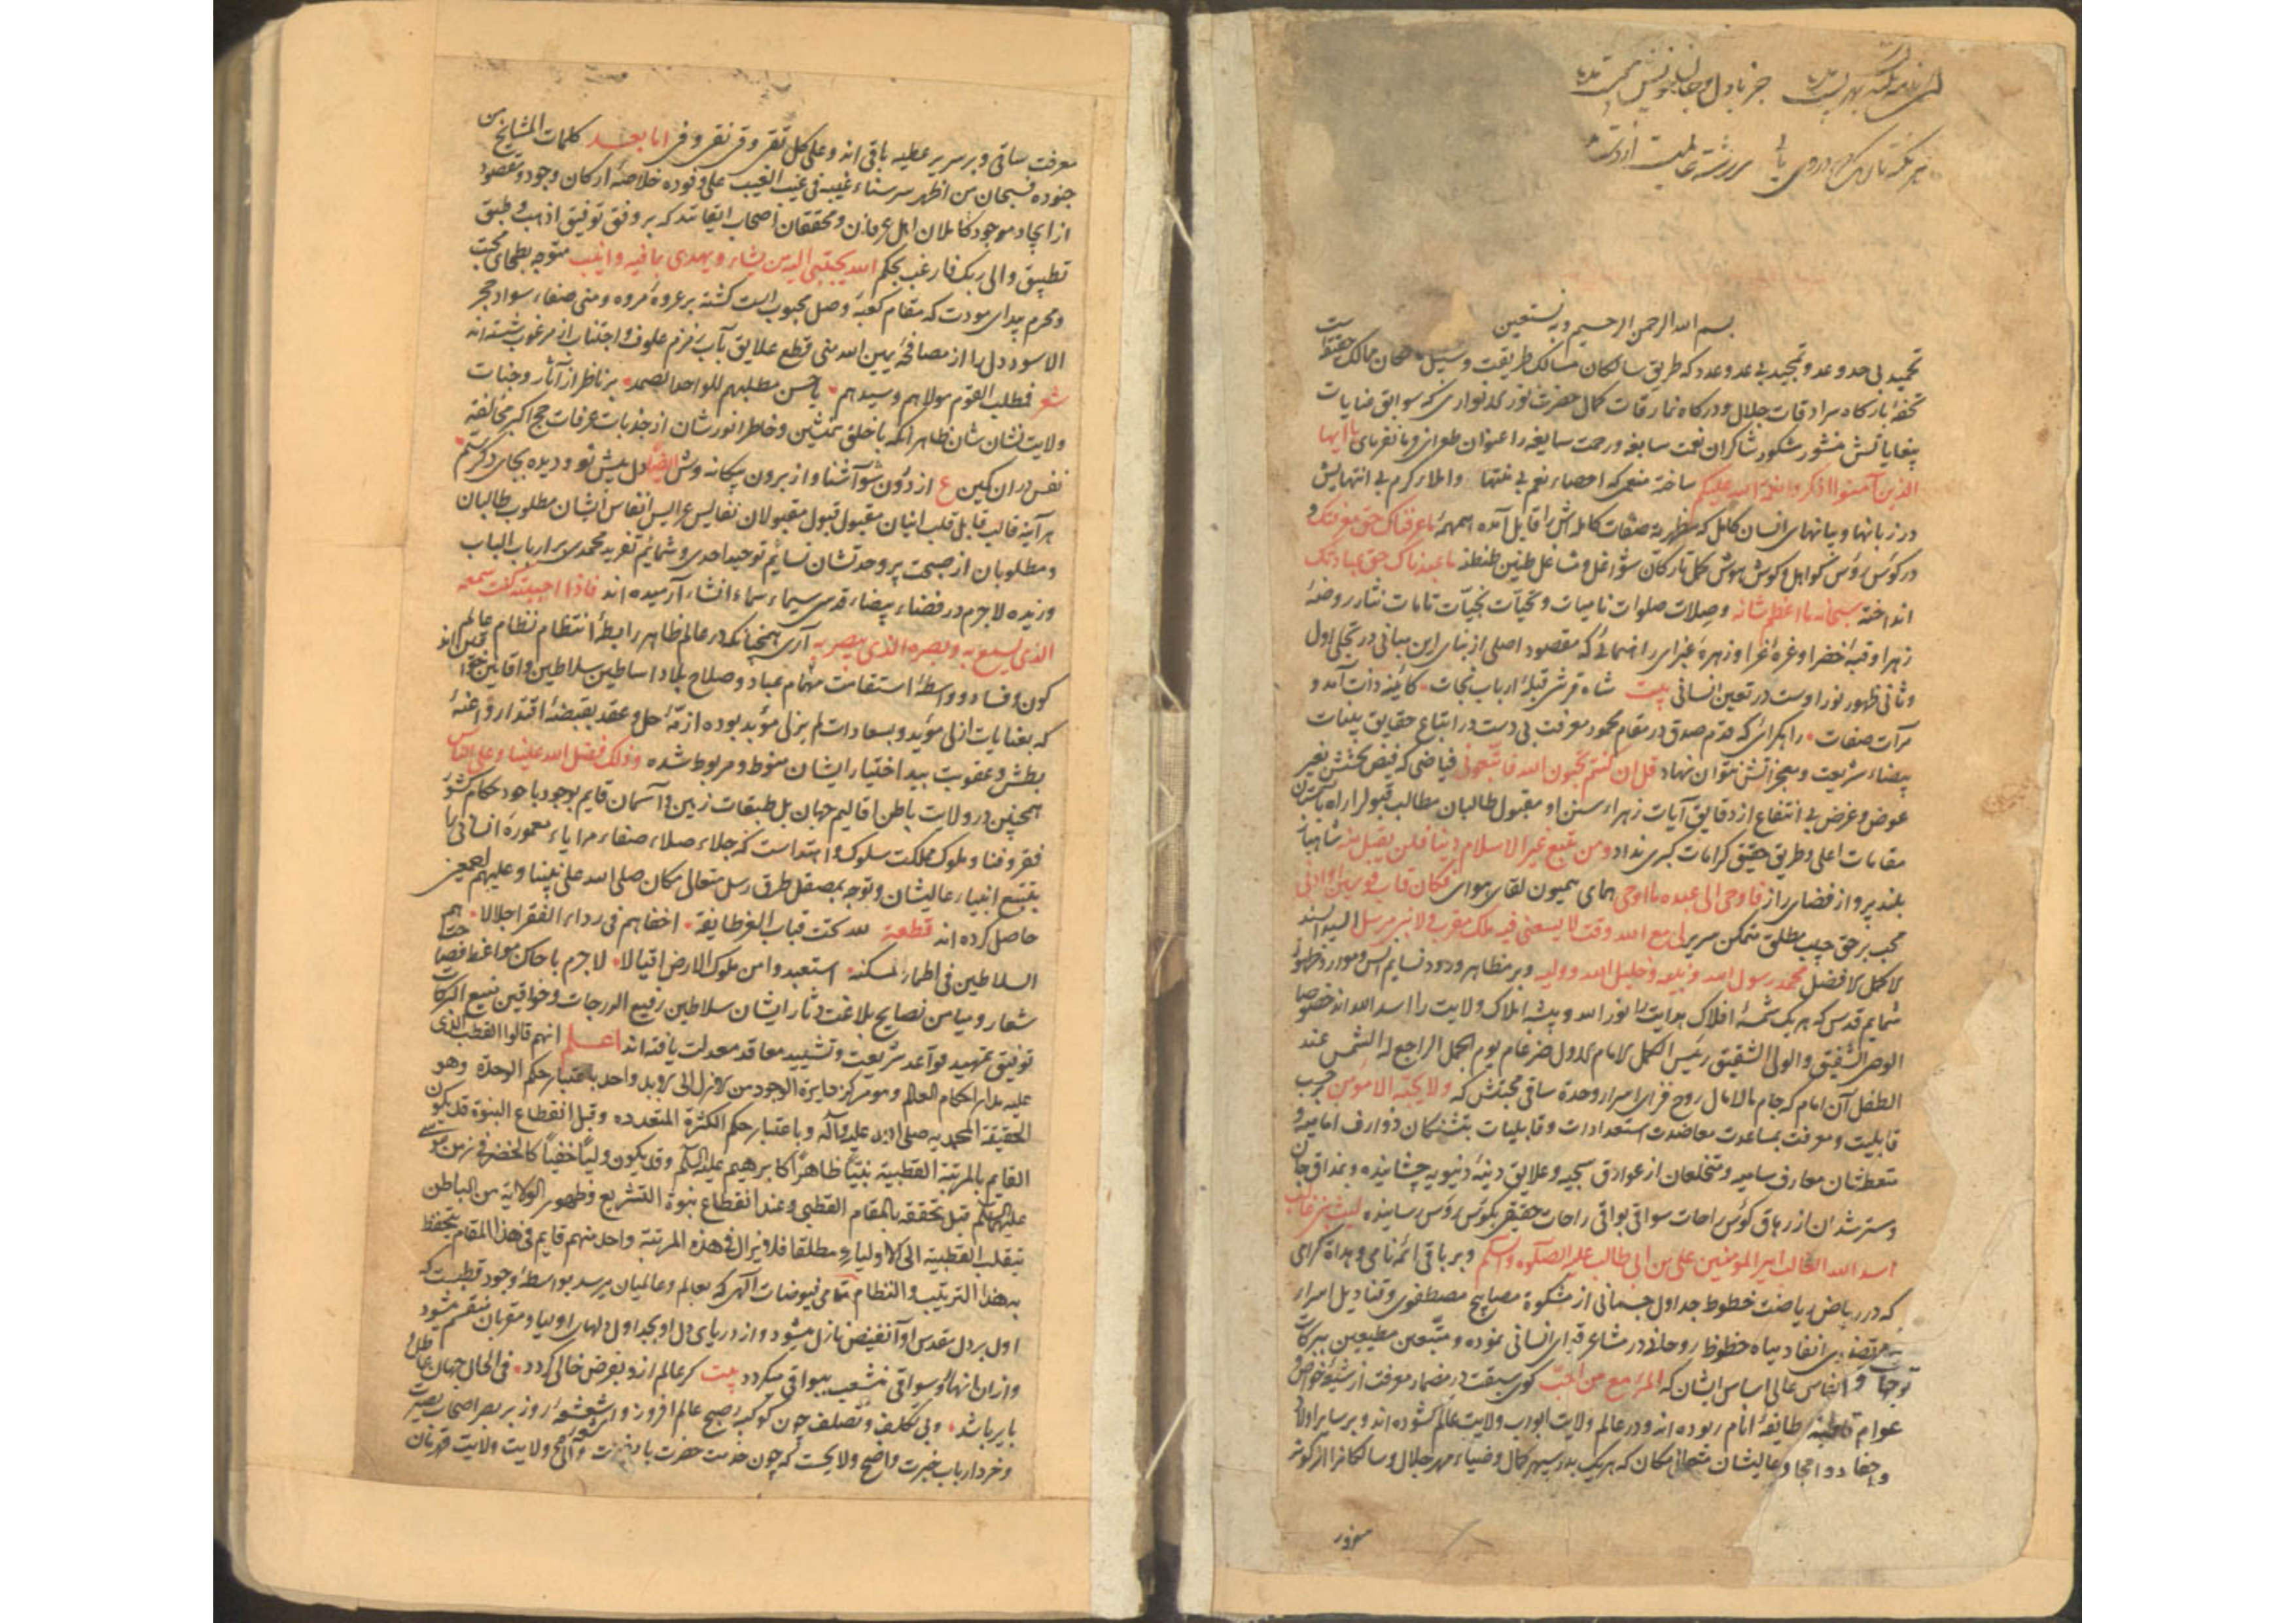 بسم الله الرحمن الرحیم وبه نستعین
تحمید بی حد و عد و تمجید بی عد و عدد که طریق سالکان مسالک طریقت و سبیل ممالک حقیقت
تحفهٔ بارگاه سرادقات جلال و درگاه نمارقات کمال حضرت نور که سوابق عنایات
بیغایاتش منشور شکور شاکران نعمت سابغه و رحمت سایغه را عنوان طغرای یا ایها
الذین آمنوا اذکروا نعمة الله علیکم ساخته منعمی که احصاء نعم بی منتها و املاء کرم بی انتهایش
در زبانها و بیانهای انسان کامل که مظهریة صفات کامله اش را قابل آمده همهمهٔ ما عرفناک حق معرفتک و
در کؤس رؤس کواهل و کوش هوش طنین طنطنهٔ ما عبدناک حق عبادتک
انداخته سبحانه ما اعظم شانه و صلات صلوات نامیات و تحیات تحیّات تامات نثار روضهٔ
زهرا و قبهٔ خضرا و غرهٔ غرا و زهرهٔ غبرای راهنمائی که مقصود اصلی از بنای این مبانی در تجلی اول
و ثانی ظهور نور اوست در تعین انسانی بیت شاه قرشی قبلهٔ ارباب نجات کآئینهٔ ذات آمد و
مرآت صفات راهبرائی که قدم صدق در مقام محمود معرفت بی دست در اتباع حقایق بینات
بیضاء شریعت و معجزاتش نتوان نهاد قل ان کنتم تحبون الله فاتبعونی فیاضی که فیض بخشش بغیر
عوض و غرض بی انتفاع از دقایق آیات زهراء سنن او مقبول طالبان مطالب قبول را راه
مقامات اعلی و طریق حقیق کرامات کبری نداد و من یبتغ غیر الاسلام دینا فلن یقبل منه شاهباز
بلند پرواز فضای راز فاوحی الی عبده ما اوحی همای همیون لقای هوای فکان قاب قوسین او ادنی
محب بر حق حبیب مطلق متمکن سریر لی مع الله وقت لا یسعنی فیه ملک مقرب و لا نبی مرسل
الاکمل الافضل محمد رسول الله و نبیه و خلیل الله و ولیه و بر مظاهر ورود نسایم انس و موارد ظهور
شمایم قدس که هر یک شمسهٔ افلاک هدایت را نور الله و بیشهٔ املاک ولایت را اسد الله اند خصوصا
الوصی الشفیق و الولی الشقیق رئیس الکمل الامام الاول ضرغام یوم الجمل الراجع له الشمس عند
الطفل آن امام که جام مالامال روح فزای اسرار وحدة ساقی محبتش که ولا یحبه الا مؤمن بحسب
قابلیت و معرفت بمساعدت معاضدت استعدادات و قابلیات بتشنگان ذوارف امامیه و
متعطشان معارف سامیه و متخلعان از عوارق سجیه و علایق دینهٔ دنیویه چشانیده و بمذاق جان
مسترشدان از رهاق کؤس راحات سواقی بواقی راحات حقیقی بکؤس رؤس رسانیده لیث بنی غالب
اسد الله الغالب امیر المؤمنین علی بن ابی طالب علیه الصلوة والسلم و بر باقی ائمه نامی و هداة گرامی
که در ریاض ریاضت خطوط جداول جسمانی از مشکوة مصابیح مصطفوی و قنادیل اسرار
مرتضوی انقاد میاه حظوظ روحانی در مشاعر قبهٔ انسانی نموده و متبعین مطیعین ببرکات
توجهات و انفاس عالی اساس ایشان که المرء مع من احب گوی سبقت در مضمار معرفت از شیوهٔ خواص و
عوام طایفهٔ انام ربوده اند و در عالم ولایت ابواب ولایت عالم گشوده اند و بر سایر اولاد
و احفاد و امجاد عالیشان متعالی مکان که هر یک بدر سپهر کمال و ضیاء مهر جلال و سالکانرا از کوثر
معرفت ساقی و بر سریر عطیه باقی اند و علی کل تقی و قی نقی و فی اما بعد کلمات المشایخ من
جنوده فسبحان من اظهر سر سناء غیبه فی غیب الغیب علی وفوده خلاصهٔ ارکان وجود و مقصود
از ایجاد موجود کاملان اهل عرفان و محققان اصحاب ایقانند که بر وفق توفیق اذهب و طبق
تطبیق و الی ربک فارغب بحکم الله یجتبی الیه من یشاء و یهدی الیه من ینیب متوجه بطحای محبت
و محرم بیدای مودت که مقام کعبهٔ وصل محبوب است گشته بر عروهٔ مروه و منی صفاء سواد حجر
الاسود دل را از مصافحهٔ یمین الله منی قطع علایق بآب زمزم علوف و اجتناب از مرغوب شسته اند
شعر فمطلب القوم مولاهم و سیدهم یا حسن مطلبهم للواحد الصمد بر ناظر از آثار وجنات
ولایت نشان شان ظاهر آنکه با خلق همنشین و خاطر انور شان از جذبات عرفات حج اکبر مخالفة
نفس در ان کمین ع از درون شو آشنا و از برون بیگانه وش ایضاً دل پیش تو و دیده بجای دگرستم
هر آینه قالب قابل قلب انسان مقبول قبول مقبولان نفایس عرایس انفاس ایشان مطلوب طالبان
و مطلوبان از صحبت پر وحدتشان نسایم توحید احدی و شمایم تفرید محمدی بر ارباب الباب
وزیده لاجرم در فضاء بیضاء قدسی سیماء سماء انشاء آرمیده اند فاذا احببته کنت سمعه
الذی یسمع به و بصره الذی یبصر به آری همچنانکه در عالم ظاهر رابطهٔ انتظام نظام عالم
کون و فساد و واسطهٔ استقامت مهام عباد و صلاح بلاد اساطین سلاطین و
که بعنایات ازلی مؤید و بسعادات لم یزلی مؤبد بوده ازمّهٔ حل و عقد بقبضهٔ اقتدار و اعنهٔ
بطش و عقوبت بید اختیار ایشان منوط و مربوط شده و ذلک فضل الله علینا و علی الناس
همچنین در ولایت باطن اقالیم جهان بل طبقات زمین و آسمان قایم بوجود باجود حکام کشور
فقر و فنا و ملوک مملکت سلوک و اهتداست که جلاء صلاء صفاء مرایاء معمورهٔ انسانی را
بتتبع انبیاء عالیشان و توجه بمصقل طرق رسل متعالی مکان صلی الله علی نبینا و علیهم اجمعین
حاصل کرده اند قطعة لله تحت قباب العز طایفة اخفاهم فی رداء الفقر اجلالا هم
السلاطین فی اطمار مسکنة استعبدوا من ملوک الارض اقیالا لاجرم باحکام مواعظ فصاحت
شعار و میامن نصایح بلاغت دثار ایشان سلاطین رفیع الدرجات و خواقین منیع البرکات
توفیق تمهید قواعد شریعت و تشیید معاقد معدلت یافته اند اعلم انهم قالوا القطب الذی
علیه مدار احکام العالم و هو مرکز دایرة الوجود من الازل الی الابد واحد باعتبار حکم الوحدة وهو
الحقیقة المحمدیه صلی الله علیه وآله و باعتبار حکم الکثرة المتعدده وقبل انقطاع النبوة قد یکون
القایم بالمرتبة القطبیة نبیّا ظاهراً کابرهیم علیه السلم وقد یکون ولیاً خفیاً کالخضر فی زمن موسی
علیهما السلم قبل تحققه بالمقام القطبی و عند انقطاع نبوة التشریع وظهور الولایة من الباطن
تنقلب القطبیه الی الاولیاء مطلقا فلا یزال فی هذه المرتبة واحد منهم قایم فی هذا المقام یتحفظ
به هذا الترتیب والنظام تمامی فیوضات الهی که بعالم و عالمیان میرسد بواسطهٔ وجود قطبست که
اول بر دل مقدس او آنفیض نازل میشود و از دریای دل او بجداول دلهای اولیا و مقربان منقسم میشود
و ازان انهار و سواقی منشعب ببواقی میگردد بیت گر عالم ازو بفرض خالی گردد فی الحال جهان
بایر باشد و بی تکلف و تصلف چون کوکبهٔ صبح عالم افروز و اشعشعهٔ روز بر بصر اصحاب بصیرت
و خرد ارباب خبرت واضح و لایحست که چون خدمت حضرت ولایت ولایت قهرمان